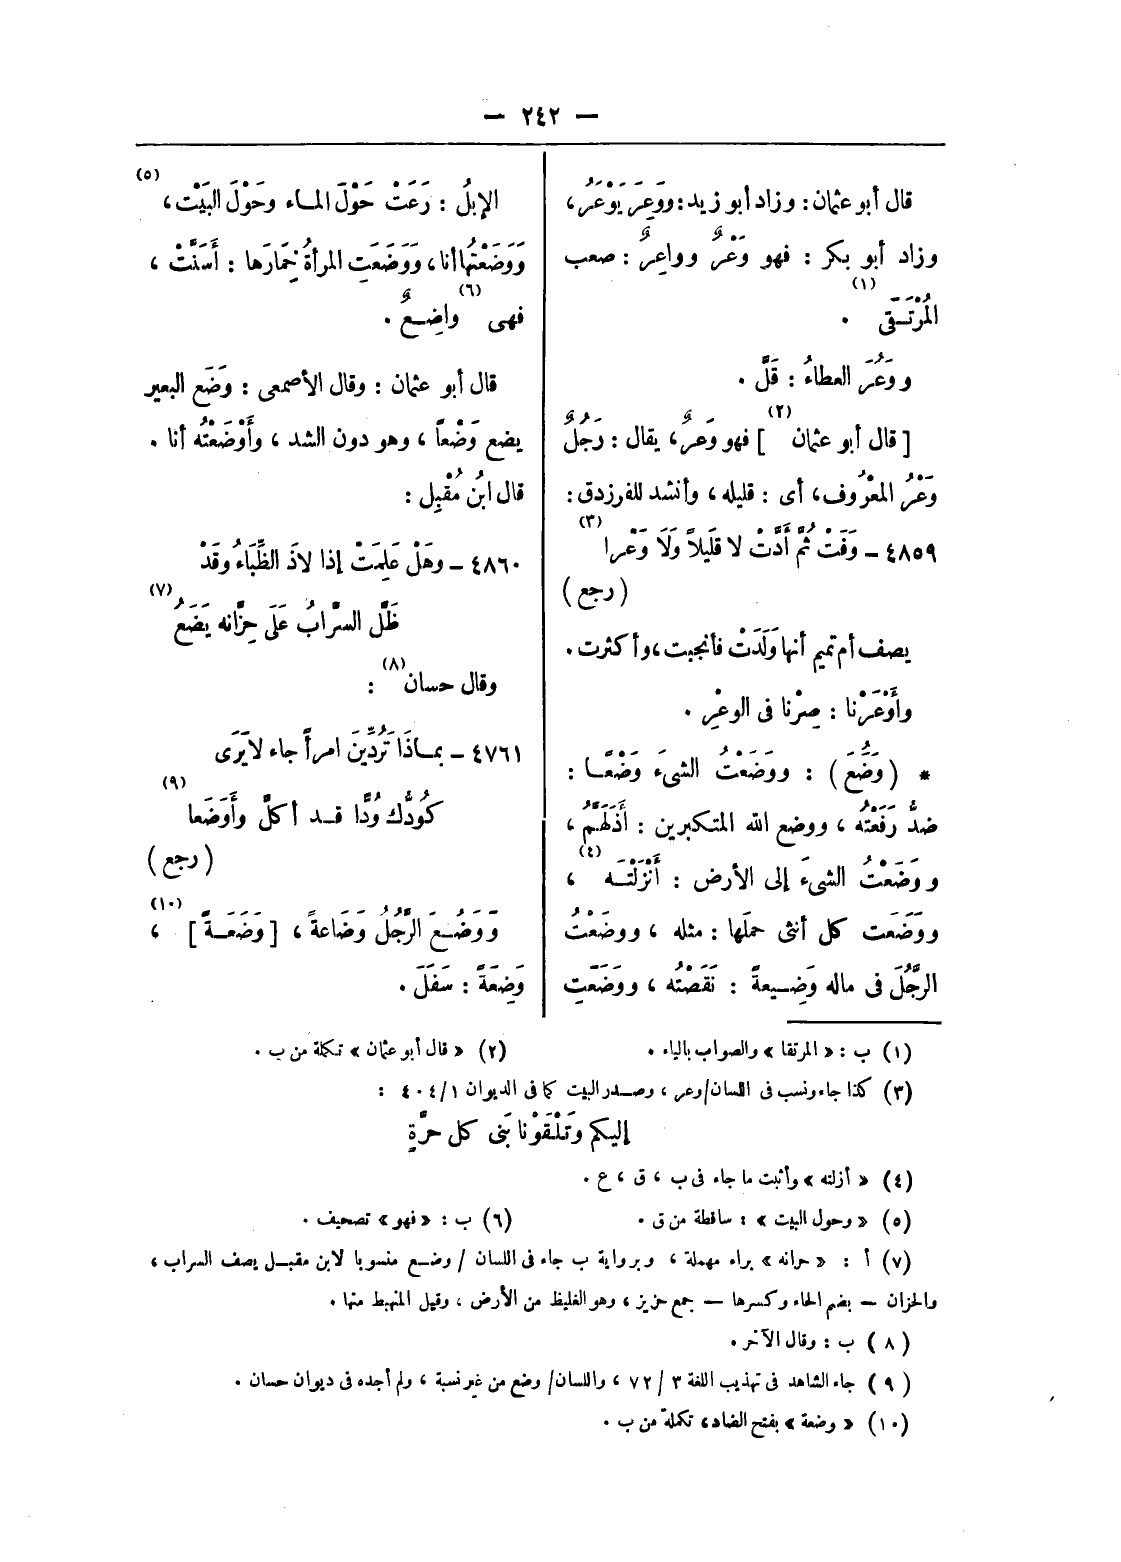 — ٢٤٢ —
قال أبو عثمان: وزاد أبو زيد: ووَعِرَ يَوْعَرُ،
وزاد أبو بكر : فهو وَعْرٌ وواعِرٌ : صعب
المُرْتَقَى (١) .
ووَعُرَ العطاءُ : قَلَّ .
[ قال أبو عثمان (٢) ] فهو وَعرٌ، يقال : رَجُلٌ
وَعْرُ المعْرُوف، أى : قليله ، وأنشد للفرزدق :
٤٨٥٩ – وَفَتْ ثُمَّ أَدَّتْ لا قَلِيلاً وَلَا وَعْرا (٣)
( رجع )
يصف أم تميم أنها وَلَدَتْ فأنجبت ، وأكثرت .
وأَوْعَرْنا : صِرْنا فى الوعْرِ .
* ( وَضُعَ ) : ووَضَعْتُ الشىءَ وَضْعًا :
ضدُّ رَفَعْتُه ، ووضع الله المتكبرين : أَذَلَّهُم ،
ووَضَعْتُ الشىءَ إلى الأرض : أَنْزَلْتَه (٤) ،
ووَضَعَت كل أنثى حملَها : مثله ، ووضَعْتُ
الرَّجُلَ فى ماله وَضِيعةً : نَقَصْتُه ، ووَضَعَتِ
الإبلُ : رَعَتْ حَوْلَ الماء وحَوْلَ البَيْت (٥) ،
وَوَضَعْتُها أنا ، وَوَضَعَتِ المرأةُ خِمَارَها : أَسَنَّتْ ،
فهى (٦) واضِعٌ .
قال أبو عثمان : وقال الأصمعى : وَضَع البعير
يضع وَضْعاً ، وهو دون الشد ، وأَوْضَعْتُه أنا .
قال ابنُ مُقْبِل :
٤٨٦٠ – وهَلْ عَلِمَتْ إذا لاذَ الظِّبَاءُ وقَدْ
ظَلَّ السرَّابُ عَلَى حِزَّانه يَضَعُ (٧)
وقال حسان (٨) :
٤٧٦١ – بماذَا تَرُدِّينَ امرأً جاء لاَيَرَى
كَوُدُّك وُدًّا قد أكلَّ وأَوضَعا (٩)
( رجع )
وَوَضُعَ الرَّجُلُ وَضَاعةً ، [ وَضَعَةً ] (١٠) ،
وَضِعَةً : سَفَلَ .
(١) ب : « المرتقا » والصواب بالياء .
(٢) « قال أبو عثمان » تكملة من ب .
(٣) كذا جاء ونسب فى اللسان/وعر ، وصدر البيت كما فى الديوان ٤٠٤/١ :
إليكم وتَلْقَوْنا بَنى كل حرَّةٍ
(٤) « أزلته » وأثبت ما جاء فى ب ، ق ، ع .
(٥) « وحول البيت » : ساقطة من ق .
(٦) ب : « فهو » تصحيف .
(٧) أ : « حرانه » براء مهملة ، وبرواية ب جاء فى اللسان / وضع منسوبا لابن مقبل يصف السراب ،
والحزان – بضم الحاء وكسرها – جمع حزيز ، وهو الغليظ من الأرض ، وقيل المنهبط منها .
(٨) ب : وقال الآخر .
(٩) جاء الشاهد فى تهذيب اللغة ٣ / ٧٢ ، واللسان/ وضع من غير نسبة ، ولم أجده فى ديوان حسان .
(١٠) « وضعة » بفتح الضاد، تكملة من ب .